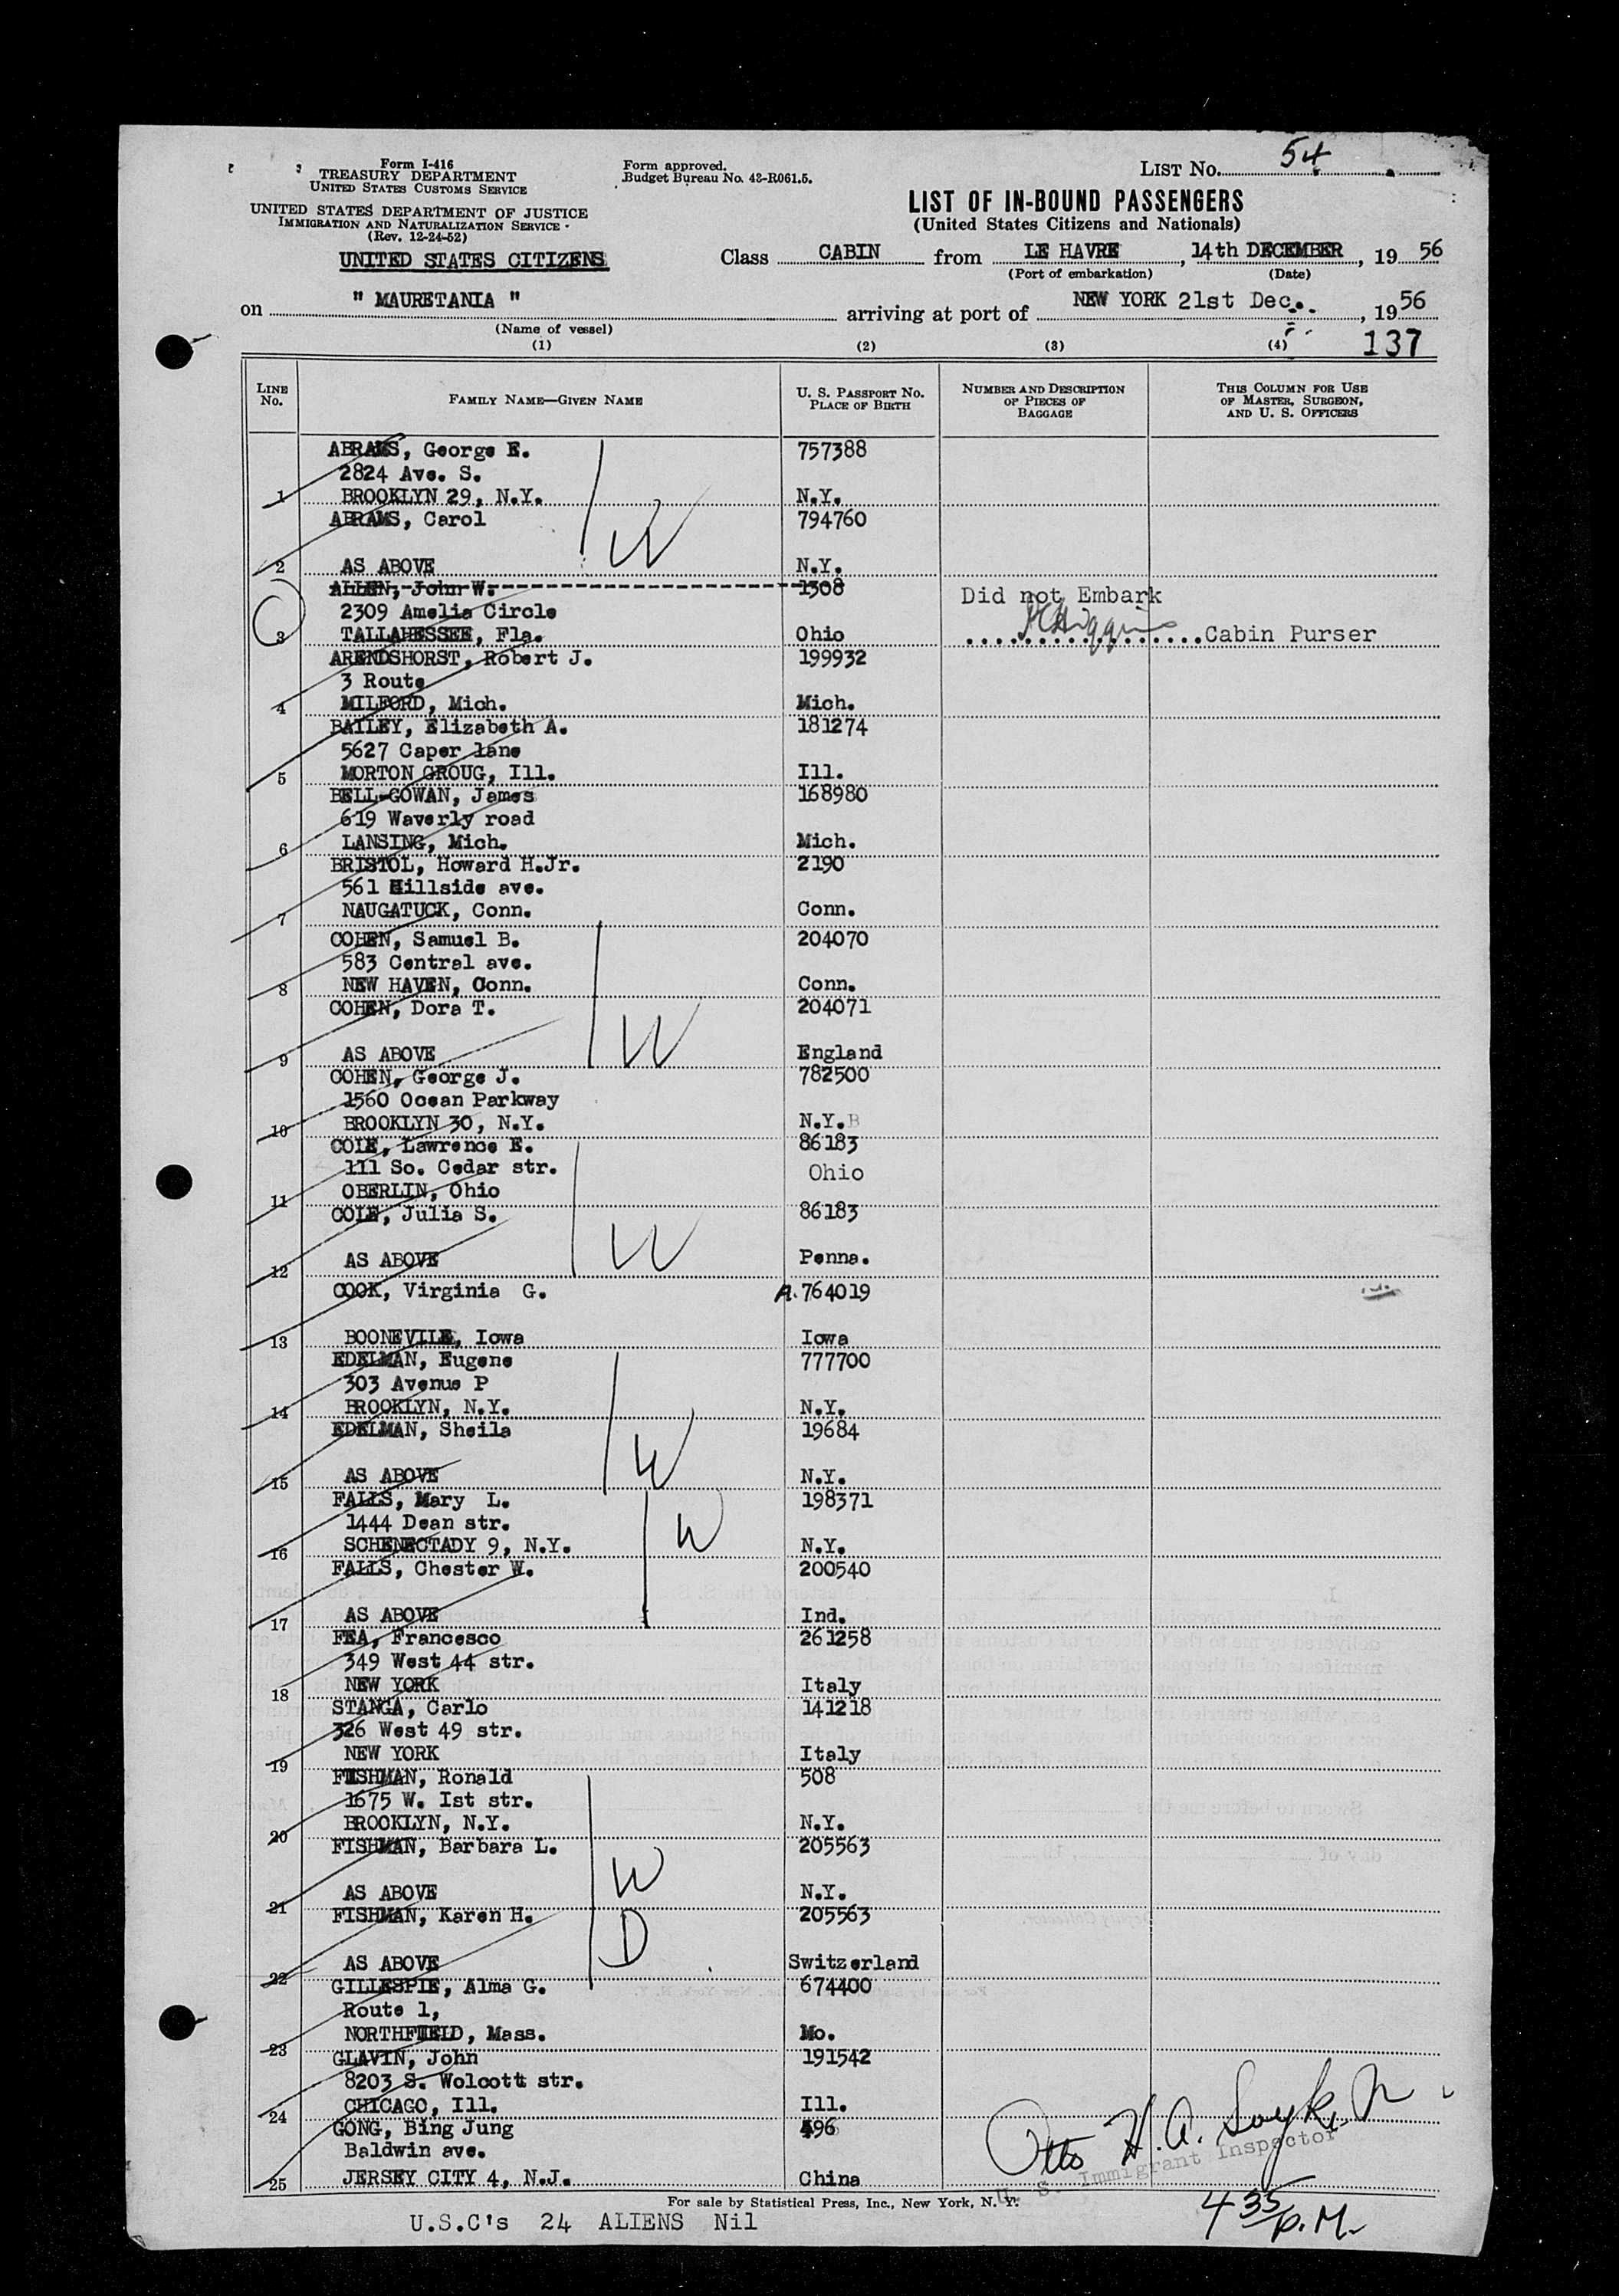 Form I-416
TREASURY DEPARTMENT
UNITED STATES CUSTOMS SERVICE
UNITED STATES DEPARTMENT OF JUSTICE
IMMIGRATION AND NATURALIZATION SERVICE
(Rev. 12-24-52)
Form approved.
Budget Bureau No. 43-R061.5.
LIST No. 54
LIST OF IN-BOUND PASSENGERS
(United States Citizens and Nationals)
UNITED STATES CITIZENS
Class CABIN from LE HAVRE, 14th DECEMBER, 1956
(Port of embarkation) (Date)
on " MAURETANIA " arriving at port of NEW YORK 21st Dec., 1956
(Name of vessel)
(1) (2) (3) (4) 137
LINE No. FAMILY NAME—GIVEN NAME U. S. PASSPORT NO. PLACE OF BIRTH NUMBER AND DESCRIPTION OF PIECES OF BAGGAGE THIS COLUMN FOR USE OF MASTER, SURGEON, AND U. S. OFFICERS
ABRAMS, George E. 757388
2824 Ave. S.
1 BROOKLYN 29, N.Y. N.Y.
ABRAMS, Carol 794760
W
2 AS ABOVE N.Y.
ALLEN, John W. 1308 Did not Embark
2309 Amelia Circle
3 TALLAHESSEE, Fla. Ohio Cabin Purser
ARENDSHORST, Robert J. 199932
3 Route
4 MILFORD, Mich. Mich.
BAILEY, Elizabeth A. 181274
5627 Caper lane
5 MORTON GROUG, Ill. Ill.
BELL-GOWAN, James 168980
619 Waverly road
6 LANSING, Mich. Mich.
BRISTOL, Howard H.Jr. 2190
561 Hillside ave.
7 NAUGATUCK, Conn. Conn.
COHEN, Samuel B. 204070
583 Central ave.
8 NEW HAVEN, Conn. Conn.
COHEN, Dora T. 204071
W
9 AS ABOVE England
COHEN, George J. 782500
1560 Ocean Parkway
10 BROOKLYN 30, N.Y. N.Y.
COLE, Lawrence E. 86183
111 So. Cedar str. Ohio
11 OBERLIN, Ohio
COLE, Julia S. 86183
W
12 AS ABOVE Penna.
COOK, Virginia G. A.764019
13 BOONEVILE, Iowa Iowa
EDELMAN, Eugene 777700
303 Avenue P
14 BROOKLYN, N.Y. N.Y.
EDELMAN, Sheila 19684
W
15 AS ABOVE N.Y.
FALLS, Mary L. 198371
1444 Dean str. W
16 SCHENECTADY 9, N.Y. N.Y.
FALLS, Chester W. 200540
17 AS ABOVE Ind.
FEA, Francesco 261258
349 West 44 str.
18 NEW YORK Italy
STANGA, Carlo 141218
326 West 49 str.
19 NEW YORK Italy
FISHMAN, Ronald 508
1675 W. Ist str.
20 BROOKLYN, N.Y. N.Y.
FISHMAN, Barbara L. 205563
W
21 AS ABOVE N.Y.
FISHMAN, Karen H. 205563
D
22 AS ABOVE Switzerland
GILLESPIE, Alma G. 674400
Route 1,
23 NORTHFIELD, Mass. Mo.
GLAVIN, John 191542
8203 S. Wolcott str.
24 CHICAGO, Ill. Ill.
GONG, Bing Jung 496
Baldwin ave.
25 JERSEY CITY 4, N.J. China
Otto H. A.
U. S. Immigrant Inspector
For sale by Statistical Press, Inc., New York, N. Y.
U.S.C's 24 ALIENS Nil
4 35 P.M.